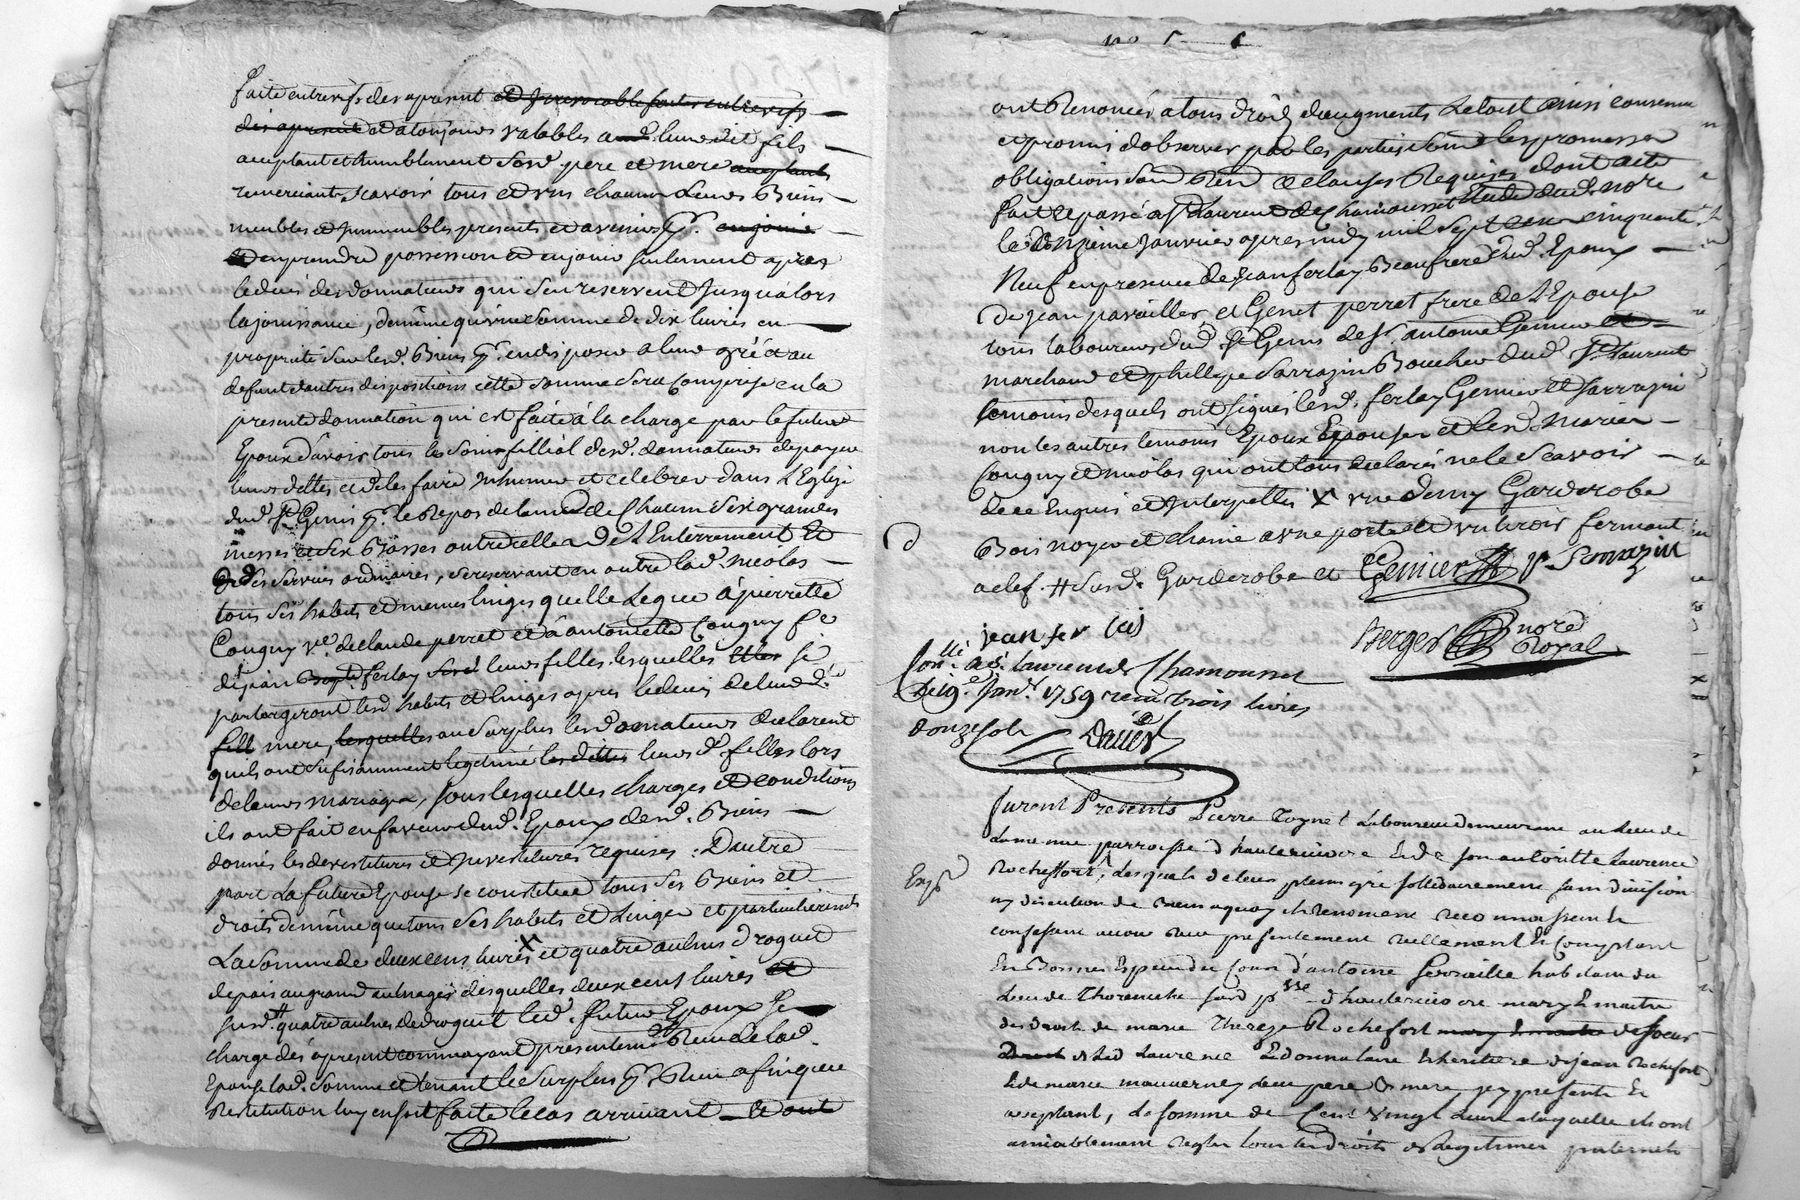 faite entrevifs des apresent et Jrrevocable faites entrevifs
des apresent et atoujours valables aud. leurdit fils
acceptant et humblement sesd. pere et mere acceptants
remerciant, scavoir tous et uns chacuns Leurs Biens
meubles et Jmmeubles presents et avenirs pr. en jouir
et en prendre possession et en jouir seulement apres
le deces des donnateurs qui s'en reservent Jusqu'alors
la jouissance, de même qu'une somme de dix livres en
proprieté sur lesd. Biens pr. en disposer a leur gré et au
defaut d'autres dispositions cette somme sera Comprise en la
presente donnation qui est faitte à la charge par le futur
Epoux d'avoir tous les soins fillial desd. donnateurs de payer
leurs dettes et de les faire Jnhumer et celebrer dans L'Eglise
dud. St. Genis pr. le Repos de lame de Chacun six grandes
messes et six Basses outre celles de L'Enterrement Et
des services ordinaires, se reservant en outre lad. Nicolas
tous ses habits et menus linges quelle Legue à pierrette
Cougny ve. de claude perret et a antoinette Cougny fe.
de jean ferlay leurs filles lesquelles se
partargeront lesd. habits et linges apres le deces de leurd.
mere, lesquelles au surplus lesd. donnateurs declarent
quils ont suffisamment legitimé lesdittes leursd. filles lors
de leurs mariages, sous lesquelles charges et conditions
ils ont fait en faveur dud. Epoux desd. Biens
donnés les devestitures et Jnvestitures requises. D'autre
part La future Epouse se constitue tous ses Biens et
droits de même que tous ses habits et Linges et particulierement
La somme de deux cens livres X et quatre aulnes droguet
depais au grand aulnage desquelles deux cent livres et
susd. quatre aulnes de droguet led. futur Epoux se
charge dés apresent comme ayant presentement Reçu de lad.
Epouse lad. somme et tenant le surplus pr. Reçu afin que
Restitution luy en soit faite le cas arrivant Et ont
ont Renoncés a tous droits d'augments Le tout ainsi convenu
et promis d'observer par les parties sous les promesses
obligations sous Rend. et clauses Requises dont acte
fait et passé a St. Laurent de Chamousset Etude dud. nore
le onzieme Janvier apres midy mil sept cent cinquante
Neuf en presence de Jean ferlay Beaufrere dud. Epoux
de jean pavailler et Genet perret frere de L'Epouse
tous laboureurs dud. St. Genis de Sr. antoine Genier
marchand et phillipe Sarrazin Boucher dud. St. Laurent
temoins desquels ont signés lesd. ferlay Genier et Sarrazin
non les autres temoins Epoux Epouse et lesd. mariés
Cougny et nicolas qui ont tous declarés ne le scavoir
de ce Enquis et Interpellés X une demy Garderobe
Bois noyer et chaine a une porte et un tiroir fermant
a clef. # susd. Garderobe et Genier P Sarrazin
jean fer lai
Berger nore Royal
Conllé. a St. laurent Chamousset
Le 19e. Janvr. 1759 reçu trois livres
donze sols
Exp.
furent Presents Pierre Poynet Laboureur demeurant au Lieu de
parroisse d'hauterivoire Et de son autoritte Laurence
Rochefort, Lesquels de leur plein gré sollidairement sans division
ny discution de biens a quoy ils Renoncent reconnoissent et
confessent avoir Reçu presentement reellement Et Comptant
En Bonnes Especes du Cours d'antoine habitant du
Lieu de susd. psse. d'hauterivoire mary Et maitre
des droits de marie Therese Rochefort mary Et maitre de soeur
de Lad Laurence Et donnataire heritiere de jean Rochefort
Et de marie leur pere & mere, ycy presente Et
acceptant, La somme de Cent vingt livres a laquelle ils ont
amiablement regler tous les droits de Legitimes paternels